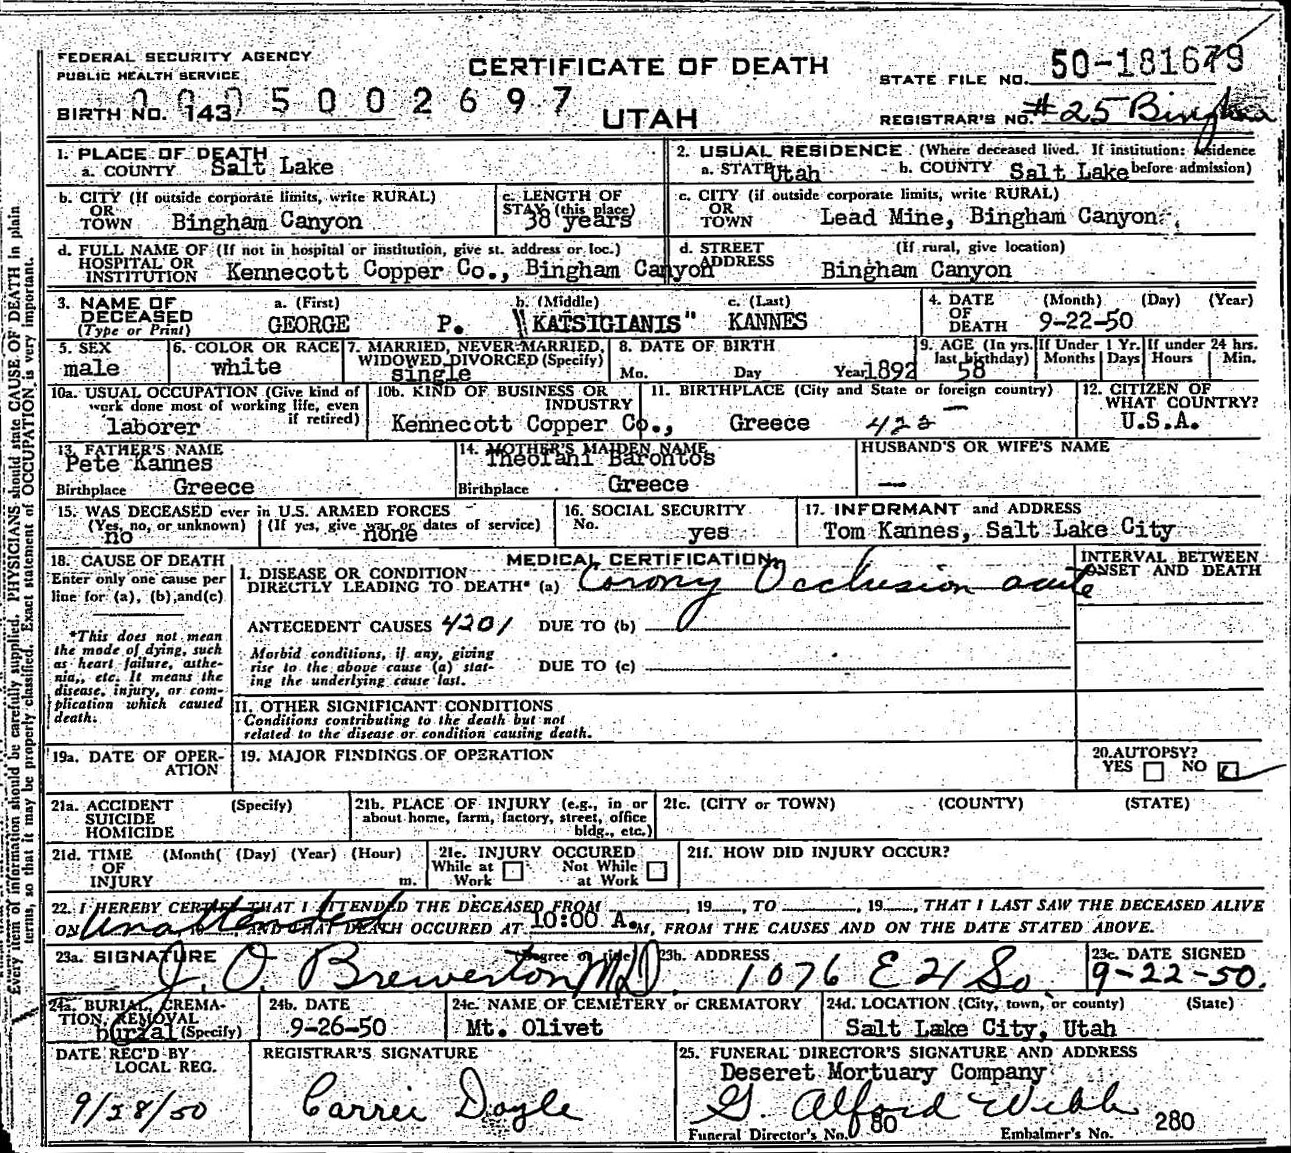 FEDERAL SECURITY AGENCY
PUBLIC HEALTH SERVICE
CERTIFICATE OF DEATH
STATE FILE NO. 50-181679
0005002697
BIRTH NO. 143
UTAH
REGISTRAR'S NO. #25 Bingham
1. PLACE OF DEATH
a. COUNTY Salt Lake
2. USUAL RESIDENCE (Where deceased lived. If institution: residence before admission)
a. STATE Utah b. COUNTY Salt Lake
b. CITY (if outside corporate limits, write RURAL)
OR
TOWN Bingham Canyon
c. LENGTH OF
STAY (this place)
38 years
c. CITY (if outside corporate limits, write RURAL)
OR
TOWN Lead Mine, Bingham Canyon
d. FULL NAME OF (If not in hospital or institution, give st. address or loc.)
HOSPITAL OR
INSTITUTION Kennecott Copper Co., Bingham Canyon
d. STREET (If rural, give location)
ADDRESS Bingham Canyon
3. NAME OF
DECEASED
(Type or Print)
a. (First) b. (Middle) c. (Last)
GEORGE P. "KATSIGIANIS" KANNES
4. DATE (Month) (Day) (Year)
OF
DEATH 9-22-50
5. SEX
male
6. COLOR OR RACE
white
7. MARRIED, NEVER MARRIED,
WIDOWED, DIVORCED (Specify)
single
8. DATE OF BIRTH
Mo. Day Year 1892
9. AGE (In yrs. last birthday)
58
If Under 1 Yr.
Months Days
If under 24 hrs.
Hours Min.
10a. USUAL OCCUPATION (Give kind of
work done most of working life, even
if retired)
laborer
10b. KIND OF BUSINESS OR
INDUSTRY
Kennecott Copper Co.,
11. BIRTHPLACE (City and State or foreign country)
Greece
12. CITIZEN OF
WHAT COUNTRY?
U.S.A.
13. FATHER'S NAME
Pete Kannes
Birthplace Greece
14. MOTHER'S MAIDEN NAME
Theofani Barontos
Birthplace Greece
HUSBAND'S OR WIFE'S NAME
—
15. WAS DECEASED ever in U.S. ARMED FORCES
(Yes, no, or unknown) (If yes, give war or dates of service)
no none
16. SOCIAL SECURITY
No. yes
17. INFORMANT and ADDRESS
Tom Kannes, Salt Lake City
18. CAUSE OF DEATH
Enter only one cause per
line for (a), (b) and (c)
*This does not mean
the mode of dying, such
as heart failure, asthe-
nia, etc. It means the
disease, injury, or com-
plication which caused
death.
MEDICAL CERTIFICATION
I. DISEASE OR CONDITION
DIRECTLY LEADING TO DEATH* (a) Corony Occlusion acute
INTERVAL BETWEEN
ONSET AND DEATH
ANTECEDENT CAUSES 4201 DUE TO (b)
Morbid conditions, if any, giving
rise to the above cause (a) stat-
ing the underlying cause last.
DUE TO (c)
II. OTHER SIGNIFICANT CONDITIONS
Conditions contributing to the death but not
related to the disease or condition causing death.
19a. DATE OF OPER-
ATION
19. MAJOR FINDINGS OF OPERATION
20. AUTOPSY?
YES NO
21a. ACCIDENT (Specify)
SUICIDE
HOMICIDE
21b. PLACE OF INJURY (e.g., in or
about home, farm, factory, street, office
bldg., etc.)
21c. (CITY or TOWN) (COUNTY) (STATE)
21d. TIME (Month( (Day) (Year) (Hour)
OF
INJURY m.
21e. INJURY OCCURED
While at Work Not While at Work
21f. HOW DID INJURY OCCUR?
22. I HEREBY CERTIFY THAT I ATTENDED THE DECEASED FROM , 19 , TO , 19 , THAT I LAST SAW THE DECEASED ALIVE
ON Unattended , AND THAT DEATH OCCURED AT 10:00 A. M, FROM THE CAUSES AND ON THE DATE STATED ABOVE.
23a. SIGNATURE (Degree or title)
J. O. Brewerton MD.
23b. ADDRESS
1076 E 21 So
23c. DATE SIGNED
9-22-50.
24a. BURIAL, CREMA-
TION, REMOVAL
burial (Specify)
24b. DATE
9-26-50
24c. NAME OF CEMETERY or CREMATORY
Mt. Olivet
24d. LOCATION (City, town, or county) (State)
Salt Lake City, Utah
DATE REC'D BY
LOCAL REG.
9/28/50
REGISTRAR'S SIGNATURE
Carrie Doyle
25. FUNERAL DIRECTOR'S SIGNATURE AND ADDRESS
Deseret Mortuary Company
G. Alford Webb
Funeral Director's No. 80 Embalmer's No. 280
Every item of information should be carefully supplied. PHYSICIANS should state CAUSE OF DEATH in plain
terms, so that it may be properly classified. Exact statement of OCCUPATION is very important.